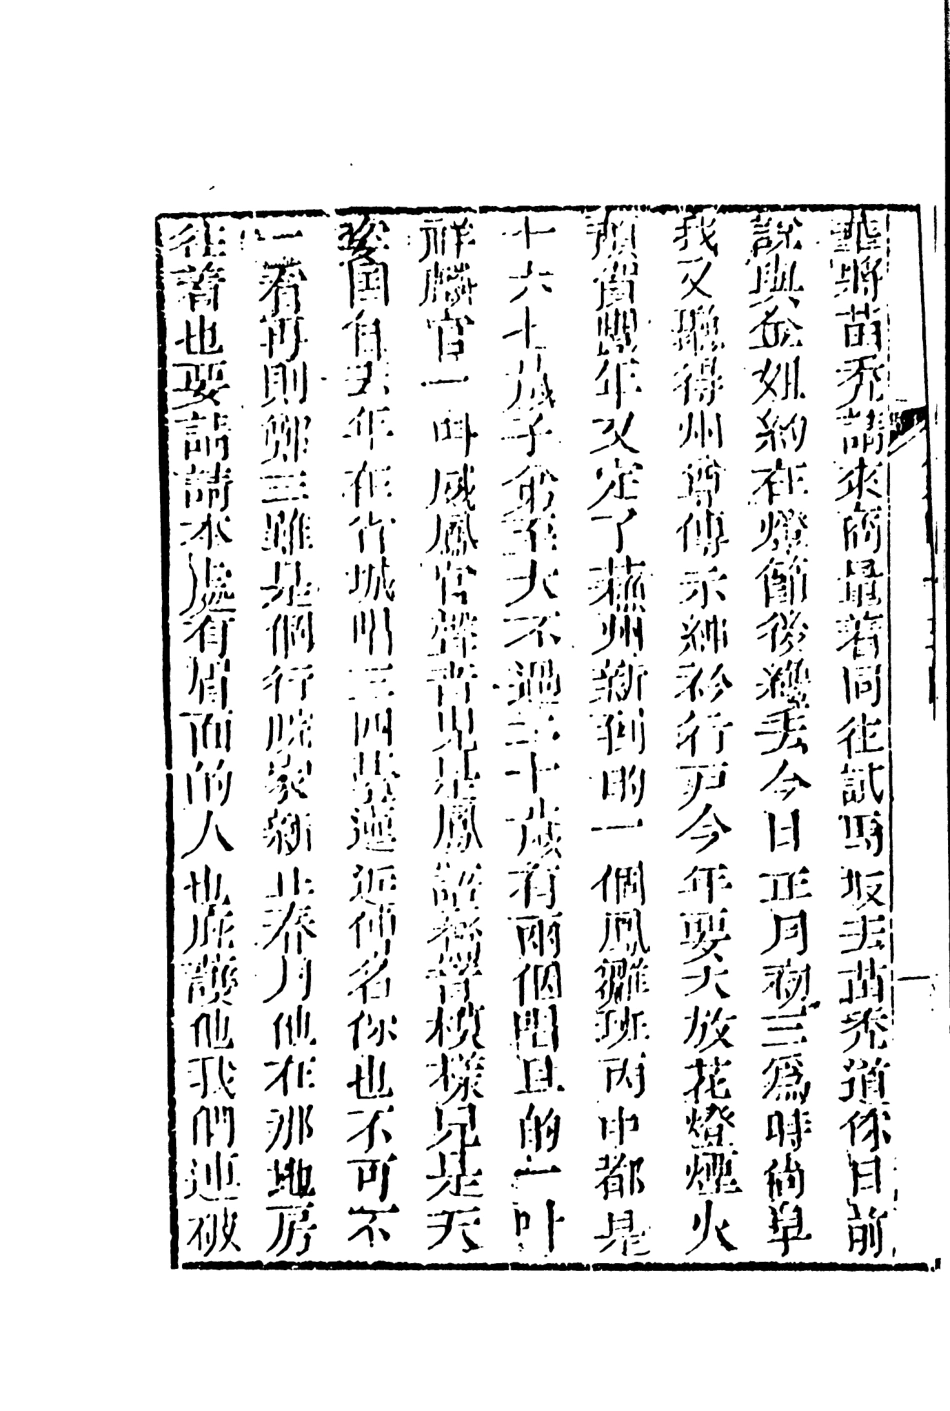 璽將苗禿請來商量着同往試馬坂去苗禿道你日前
說與金姐約在燈節後纔去今日正月初三爲時尚早
我又聽得州尊傳示紳衿行戸今年要大放花燈煙火
預賀豐年又定了蘇州新到的一個鳳雛班內中都是
十六七歲子弟至大不過二十歲有兩個唱旦的一叫
祥麟官一叫威鳳官聲音兒是鳳語鸞音模樣兒是天
姿國色去年在省城唱三四本遠近傳名你也不可不
一看再則鄭三雖是個行院家新正春月他在那地房
住着也要請請本處有眉面的人也庇護他我們連破